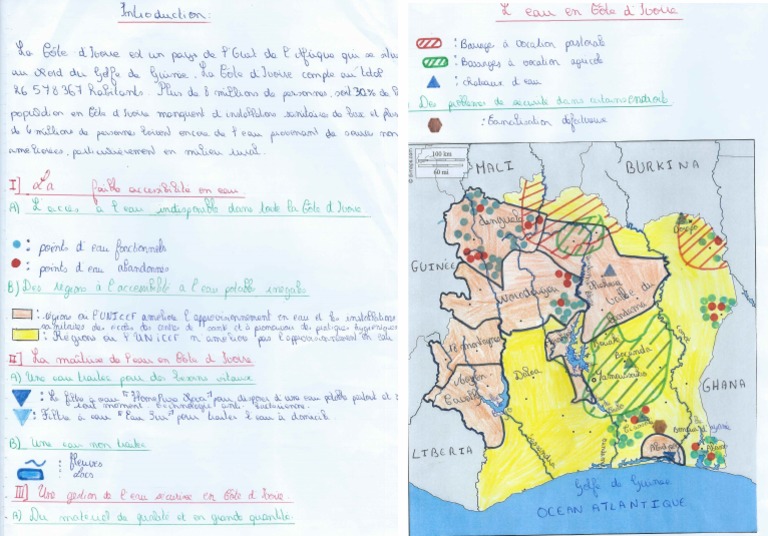 Introduction:
La Côte d'Ivoire est un pays de l'Ouest de l'Afrique qui se situe
au Nord du Golfe de Guinée. La Côte d'Ivoire compte au total
26 578 367 habitants. Plus de 8 millions de personnes, soit 30% de la
population en Côte d'Ivoire manquent d'installations sanitaires de base et plus
de 6 millions de personnes boivent encore de l'eau provenant de sources non
améliorées, particulièrement en milieu rural.
I] La faible accessibilité en eau
A) L'accès à l'eau indisponible dans toute la Côte d'Ivoire
: points d'eau fonctionnels
: points d'eau abandonnés
B) Des régions à l'accessibilité à l'eau potable inégale
: régions où l'UNICEF améliore l'approvisionnement en eau et les installations
sanitaires des écoles des centres de santé et à promouvoir des pratiques hygiéniques
: Régions où l'UNICEF n'améliore pas l'approvisionnement en eau
II] La maîtrise de l'eau en Côte d'Ivoire
A) Une eau traitée pour des besoins vitaux
: Le filtre à eau pour disposer d'une eau potable partout et à
tout moment technologie anti-bactérienne.
: Filtre à eau "Eau Sur" pour traiter l'eau à domicile
B) Une eau non traitée
: fleuves
: Lacs
III] Une gestion de l'eau sécurisée en Côte d'Ivoire
A) Du matériel de qualité et en grande quantité
L'eau en Côte d'Ivoire
: Barrage à vocation pastorale
: Barrages à vocation agricole
: châteaux d'eau
: Des problèmes de sécurité dans certains endroits
: Canalisation défectueuse
100 km
60 mi
MALI
BURKINA
GUINÉE
Denguélé
Woroba
Vallée du
Bandama
GHANA
LIBERIA
Abidjan
Golfe de Guinée
OCEAN ATLANTIQUE